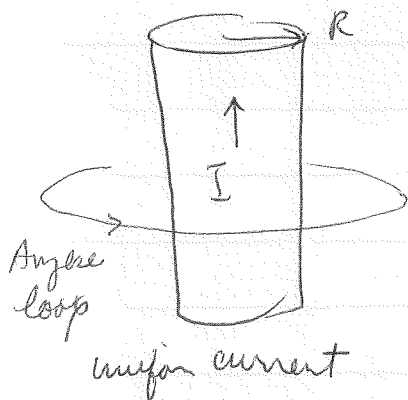 R
I
Ampere
loop
uniform current